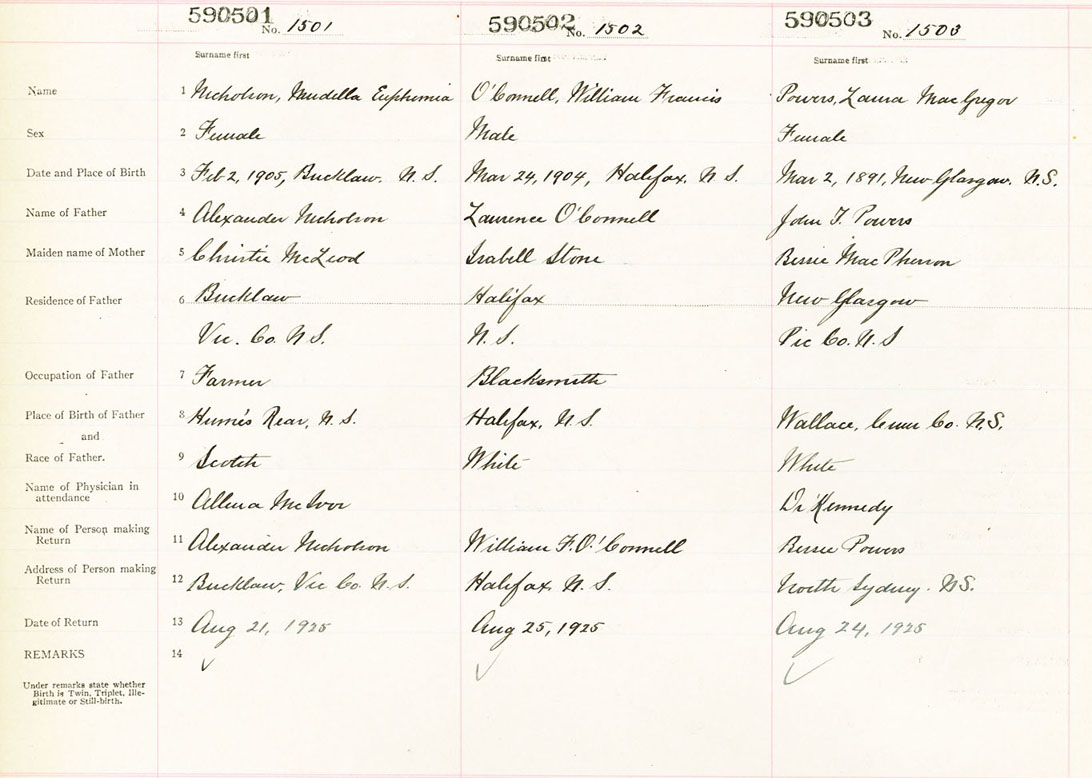 590501 No. 1501 590502 No. 1502 590503 No. 1503
Surname first Surname first Surname first
Name 1 Nicholson, Euphemia O'Connell, William Francis Powers, Laura MacGregor
Sex 2 Female Male Female
Date and Place of Birth 3 Feb 2, 1905, Bucklaw. N. S. Mar 24, 1904, Halifax. N S. Mar 2, 1891, New Glasgow. N.S.
Name of Father 4 Alexander Nicholson Lawrence O'Connell John T. Powers
Maiden name of Mother 5 Christie McLeod Isabell Stone Bessie MacPherson
Residence of Father 6 Bucklaw Halifax New Glasgow
Vic. Co. N S. N. S. Pic Co. N. S
Occupation of Father 7 Farmer Blacksmith
Place of Birth of Father 8 Hume's Rear, N. S. Halifax, N. S. Wallace, Cum Co. N.S.
and
Race of Father. 9 Scotch White White
Name of Physician in
attendance 10 McIvor Dr Kennedy
Name of Person making
Return 11 Alexander Nicholson William F. O'Connell Bessie Powers
Address of Person making
Return 12 Bucklaw, Vic Co. N. S. Halifax, N. S. North Sydney. N.S.
Date of Return 13 Aug 21, 1925 Aug 25, 1925 Aug 24, 1925
REMARKS 14
Under remarks state whether
Birth is Twin, Triplet, Ille-
gitimate or Still-birth.